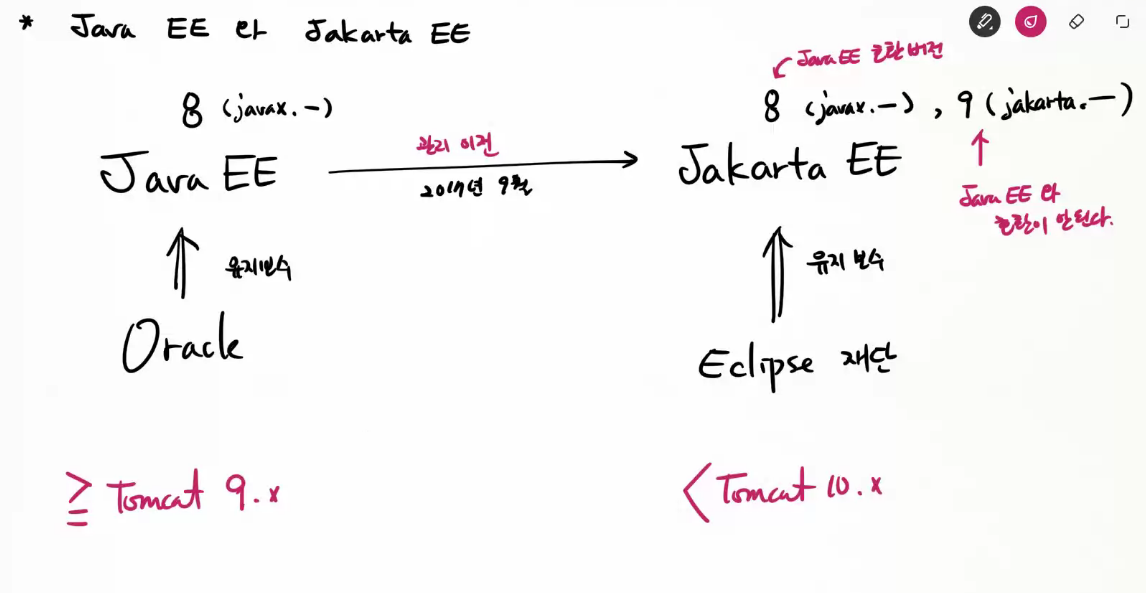 * Java EE 와 Jakarta EE
Java EE 호환 버전
8 (javax.—)
8 (javax.—), 9 (jakarta.—)
Java EE
관리 이전
2017년 9월
Jakarta EE
Java EE 와
호환이 안된다.
유지보수
유지 보수
Oracle
Eclipse 재단
≥ Tomcat 9.x
< Tomcat 10.x